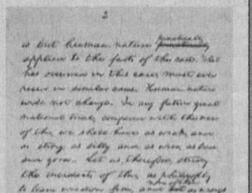 2
is but human nature practically
applied to the facts of the case. What
has occurred in this case, must ever
recur in similar cases. Human nature
will not change. In any future great
national trial, compared with the men
of this, we shall have as weak, and
as strong; as silly and as wise; as bad
and good. Let us, therefore, study
the incidents of this, as philosophy
to learn wisdom from, and